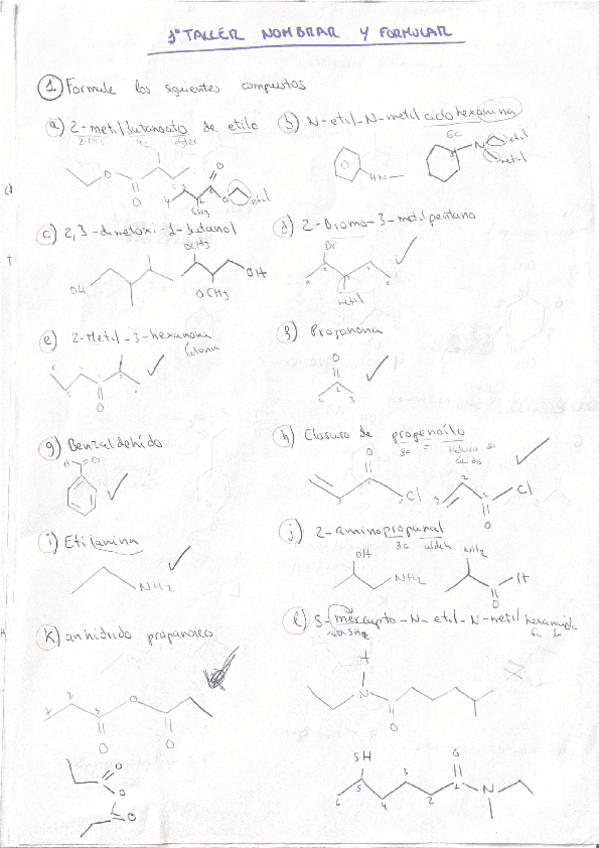 1º TALLER NOMBRAR Y FORMULAR
1 Formule los siguientes compuestos
a) 2-metilbutanoato de etilo
b) N-etil-N-metilciclohexanina
4c
éster
6c
O
O
O
O
4
CH3
etil
HN
N
etil
metil
c) 2,3-dimetoxi-1-butanol
d) 2-Bromo-3-metilpentano
OCH3
OH
OH
OCH3
Br
metil
e) 2-Metil-3-hexanona
f) Propanona
cetona
O
O
2
3
g) Benzaldehído
h) Cloruro de propenoílo
3c =
ácido
H
O
O
Cl
Cl
O
i) Etilamina
j) 2-aminopropanal
3c aldeh
NH2
OH
NH2
NH2
H
O
k) anhídrido propanoico
l) 5-mercapto-N-etil-N-metil hexamida
6c
O
O
O
N
O
O
O
O
SH
O
6 5 4 3 2 1
N